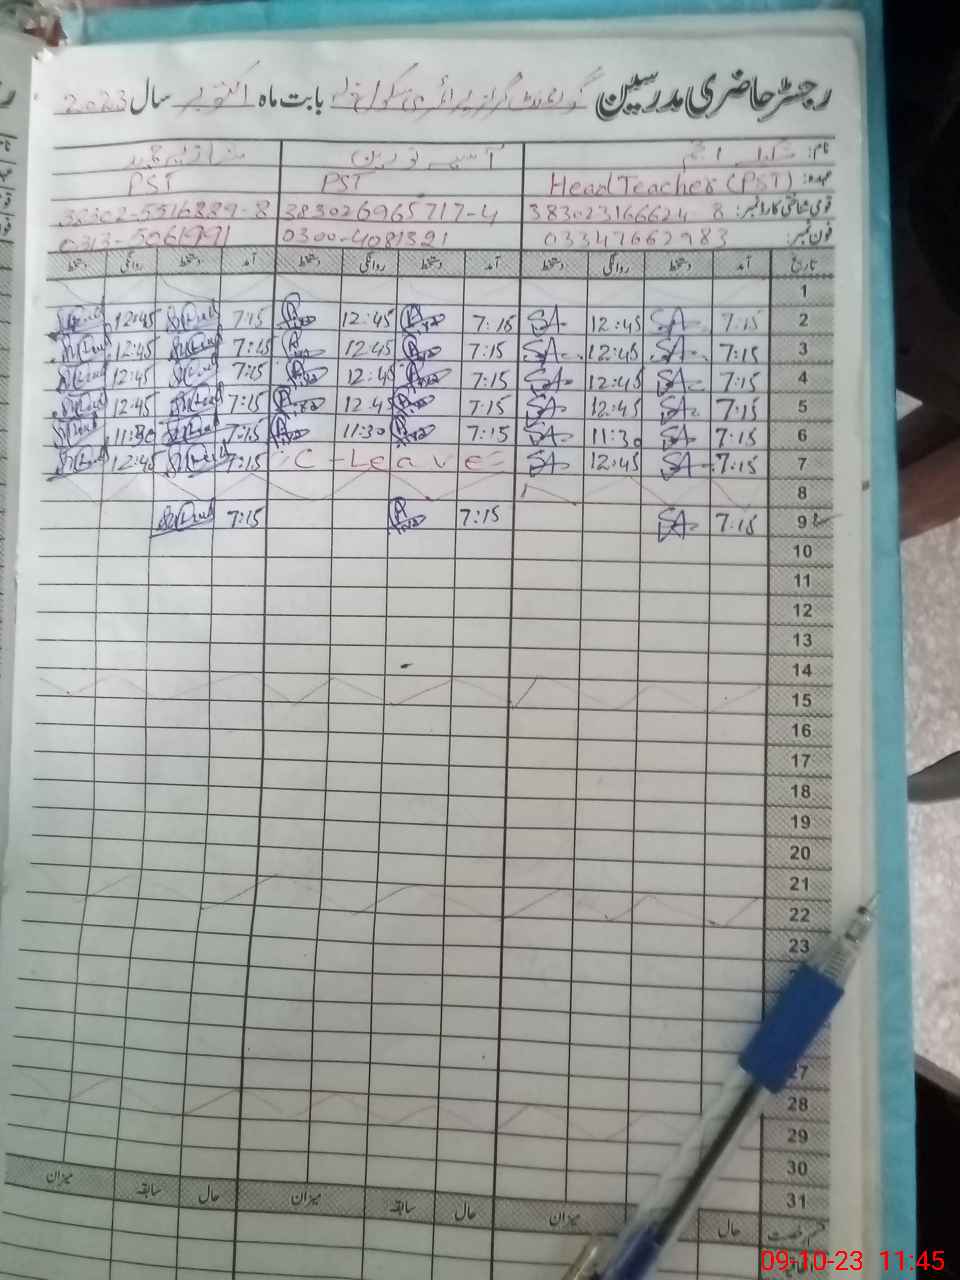 رجسٹر حاضری مدرسین گورنمنٹ گرلز پرائمری سکول بابت ماہ اکتوبر سال 2023
نام: آسیہ نورین
عہدہ: Head Teacher (PST) PST PST
قومی شناختی کارڈ نمبر: 383023166624 8 383026965717-4 38302-5516889-8
فون نمبر: 03347662983 0300-4081321 0313-5061991
تاریخ آمد دستخط روانگی دستخط آمد دستخط روانگی دستخط آمد دستخط روانگی دستخط
1
2 7:15 SA 12:45 SA 7:15 12:45 7:15 12:45
3 7:15 SA 12:45 SA 7:15 12:45 7:15 12:45
4 7:15 SA 12:45 SA 7:15 12:45 7:15 12:45
5 7:15 SA 12:45 SA 7:15 12:45 7:15 12:45
6 7:15 SA 11:30 SA 7:15 11:30 7:15 11:30
7 7:15 SA 12:45 SA C-Leave 7:15 12:45
8
9 7:15 SA 7:15 7:15
10
11
12
13
14
15
16
17
18
19
20
21
22
23
27
28
29
30
31
حال میزان حال سابقہ میزان حال سابقہ میزان
09-10-23 11:45